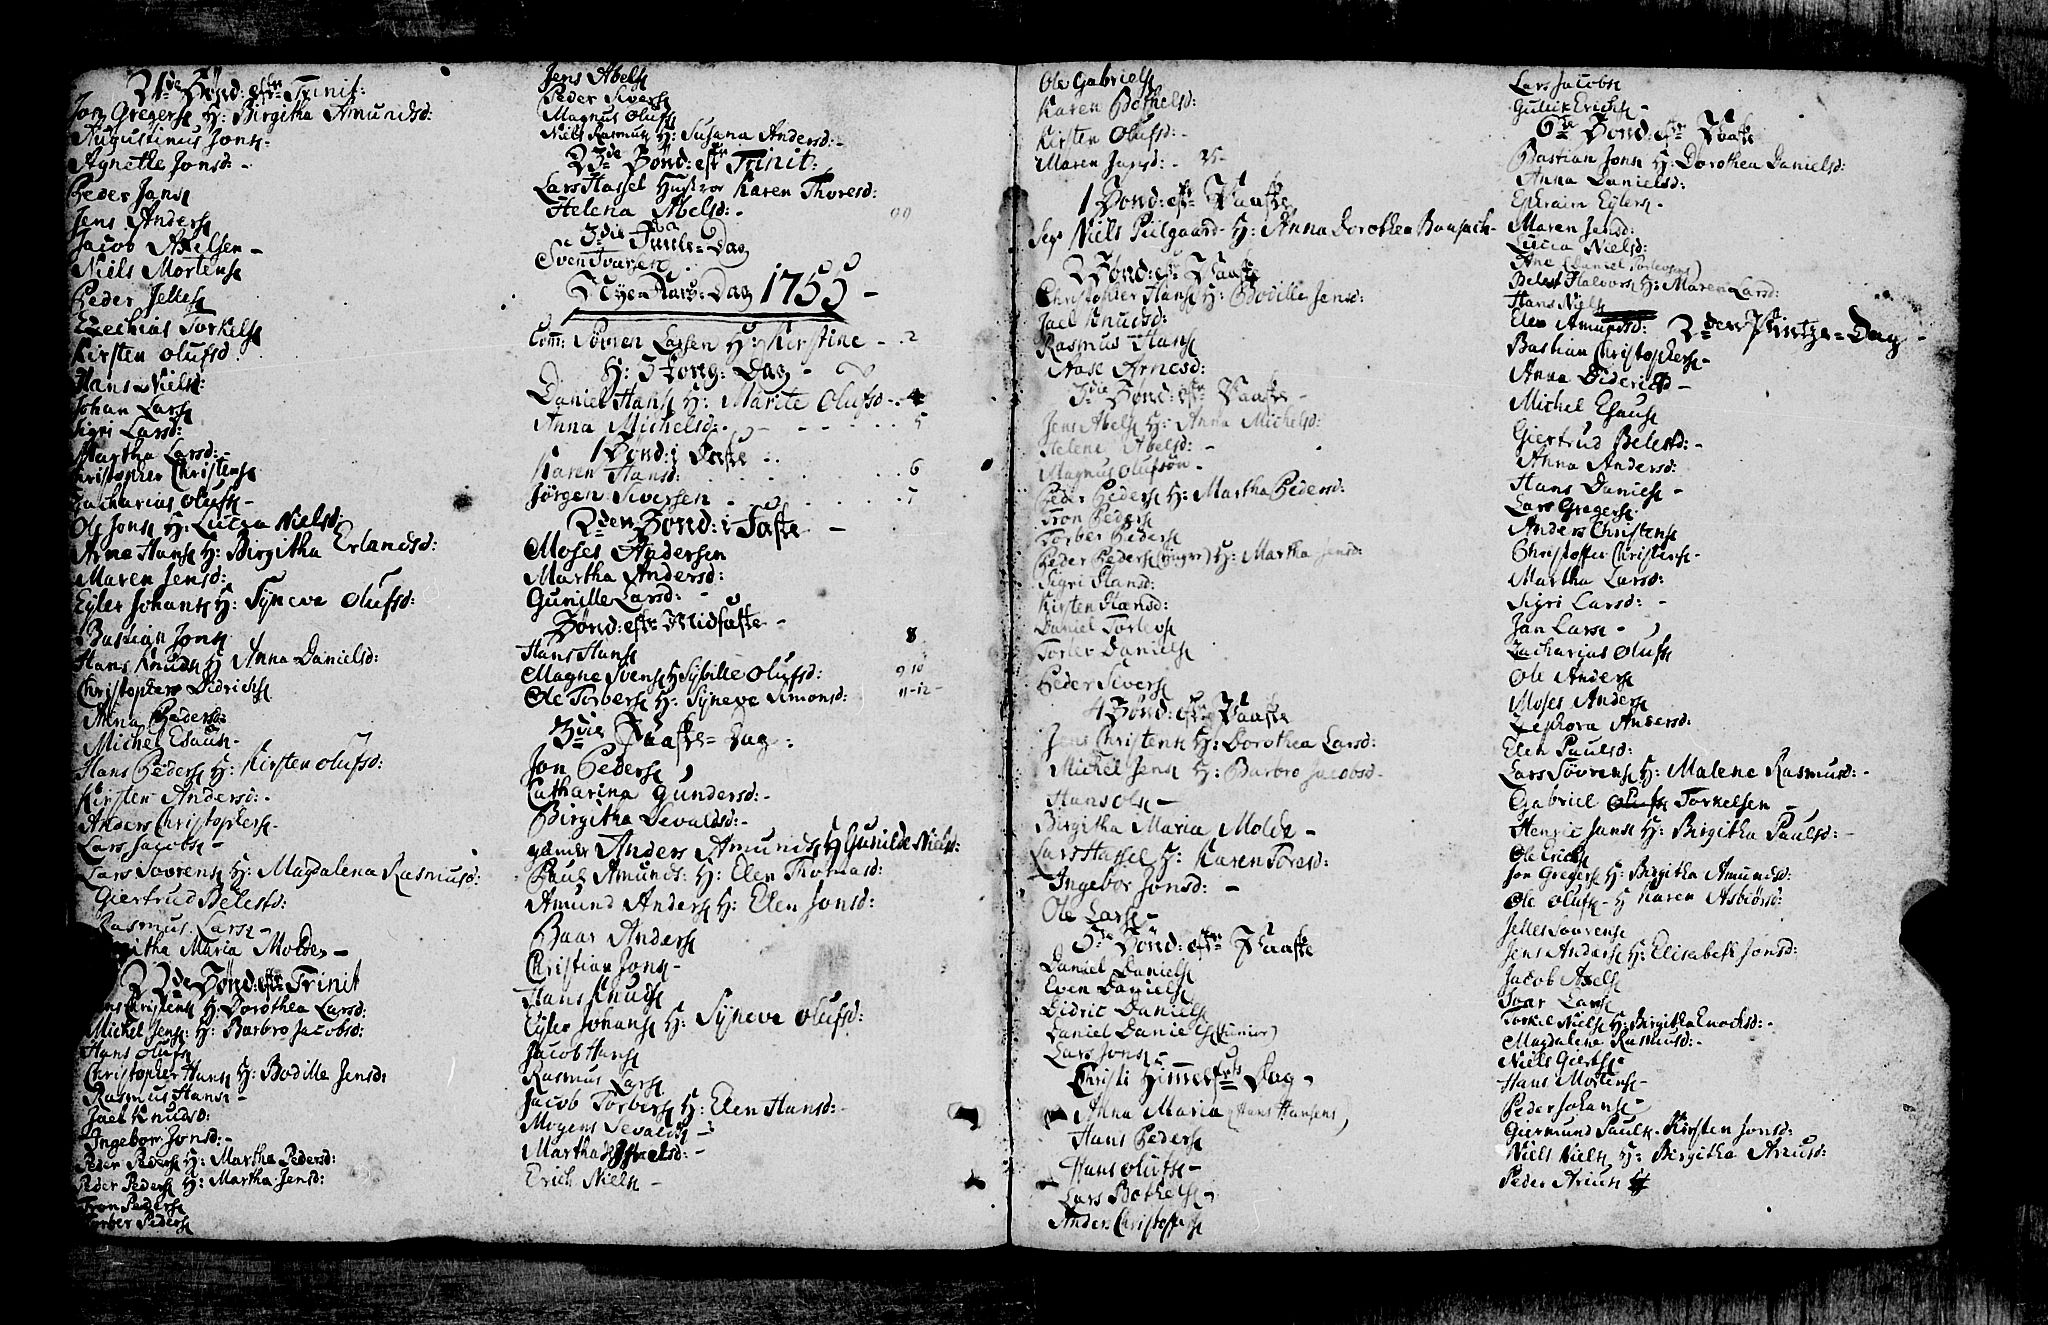 21de Sönd: eftr Trinit:
Jon Gregers H: Birgitha Amundsd:
Augustinus Jons -
Agnethe Jonsd: -
Peder Jans
Jens Anders
Jacob Axelsen -
Niels Mortens
Peder Jelles
Ezechias Torkels
Kirsten Olufsd
Hans Niels:
Johan Lars
Sigri Larsd:
Martha Larsd: -
Christopher Christens
Zacharias Olufs -
Ole Jons H: Lucia Nielsd:
Arne Hans H: Birgitha Erlandsd:
Maren Jensd:
Eyler Johans H: Syneve Olufsd:
Bastian Jons
Hans Knuds H Anna Danielsd:
Christopher Didrichs
Anna Pedersd:
Michel Esaus -
Hans Peders H: Kirsten Olufsd:
Kirsten Andersd: -
Anders Christophers -
Lars Jacobs -
Lars Sövrens H: Magdalena Rasmusd:
Giertrud Belestd:
Rasmus Lars -
Maria Molde -
22de Sönd: eftr Trinit
Christens H: Dorothea Larsd:
Michel Jens: H: Barbro Jacobsd:
Hans Olufs
Christopher Hans H: Bodille Jensd:
Rasmus Hans -
Jael Knudsd:
Ingebor Jonsd: -
Peder Peders H: Martha Pedersd:
Peder Peders H: Martha Jensd:
Tron Peders
Torber Peders
Jens Abels
Peder Sivers
Magnus Olufs
Niels Rasmus H: Susana Andersd: -
23de Sönd: eftr Trinit:
Lars Hassel Karen Thoresd:
Helena Abelsd: -
3die Juule-Dag
Sven Ivarsen
Nye-Aars-Dag 1755 -
Com: Sövren Larsen H: Kirstine - . 2
H: 3 Kong: Dag -
Daniel Hans H: Marite Olufsd - . 4
Anna Michelsd: . - . . . . 5
1 Sönd: i Faste
Karen Hansd: . . . . . 6
Jörgen Siversen - . . . . 7
2den Sönd: i Faste -
Moses Andersen
Martha Andersd:
Gunille Larsd: -
Sönd: eftr Midfaste -
Hans Hans 8
Magne Svens H Sybille Olufsd: 9 10
Ole Torbers H: Syneve Simonsd: 11-12-
3die Paaske-Dag:
Jon Peders
Catharina Gundersd: -
Birgitha Sevaldsd: -
Anders Amunds H Gunilde Nielsd:
Paul Amunds: H: Elen Thomasd:
Amund Anders H: Elen Jonsd:
Baar Anders
Christian Jons -
Hans Knuds
Eyler Johans H: Syneve Olufsd:
Jacob Hans
Rasmus Lars
Jacob Torbers H: Elen Hansd: -
Mogens Sevalds -
Martha
Erich Niels -
Ole Gabriels
Karen Bothelsd:
Kirsten Olufsd: -
Maren Jensd: - 25-
1 Sönd: eftr Paaske
Niels Pülgaard H: Anna Dorothea
2 Sönd: eft Paaske
Christopher Hans H: Bodille Jensd:
Jael Knudsd:
Rasmus Hans
Aase Arnesd:
3die Sönd: eftr Paaske -
Jens Abels H: Anna Michelsd:
Helene Abelsd: -
Magnus Olufsön -
Peder Peders H: Martha Pedersd:
Tron Peders
Torber Peders
Peder Peders (Yngre) H: Martha Jensd:
Sigri Hansd:
Kirsten Hansd:
Daniel Torlevs
Torlev Daniels
Peder Sivers
4 Sönd: eftr Paaske
Jens Christens H: Dorothea Larsd:
Michel Jens H: Barbro Jacobsd -
Hans Ols -
Birgitha Maria Molde -
Lars Hassel H: Karen Toresd:
Ingebor Jonsd: -
Ole Lars -
5te Sönd: eftr Paaske
Daniel Daniels
Even Daniels
Didric Daniels
Daniel Daniels (Junior)
Lars Jons -
Christi Himmelfrts Dag -
Anna Maria (Hans Hansens)
Hans Peders
Hans Olufs -
Lars Bothels -
Anders Christophers
Lars Jacobs
Gullik Erichs -
6te Sönd: eftr Paaske
Bastian Jons H: Dorothea Danielsd:
Anna Danielsd:
Ephraim Eylers -
Maren Jensd:
Lucia Nielsd:
Ane (Daniel Torlevsens)
Belest Halvors H: Maren Larsd:
Hans Niels
Elen Amundsd: 2den Pintze-Dag -
Bastian Christophers -
Anna Diderichsd -
Michel Esaus
Giertrud Belestd: -
Anna Andersd:
Hans Daniels -
Lars Gregers
Anders Christens
Christoffer Christens -
Martha Larsd:
Sigri Larsd: -
Jan Lars -
Zacharias Olufs
Ole Anders
Moses Anders
Zephora Andersd:
Elen Paulsd:
Lars Sövrens H: Malene Rasmusd: -
Gabriel Olufs Torkelsen -
Henric Jans H: Birgitha Paulsd: -
Ole Erichs
Jon Gregers H: Birgitha Amundsd:
Ole Olufs - H Karen Asbiörsd:
Jelles Sövrens
Jens Anders H: Elisabeth Jonsd:
Jacob Axels
Ivar Lars
Torkel Niels H: Birgitha Enochsd: -
Magdalene Rasmusd: -
Niels Gierts
Hans Mortens -
Peder Johans -
Giermund Pauls - Kirsten Jonsd:
Niels Niels H: Birgitha Ariusd:
Peder Arius